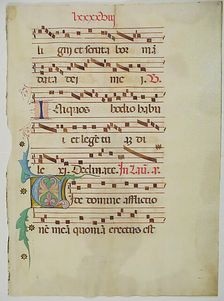 lxxxxviij
li gni et scruta bor mā
data dei me i. V.
Iniquos hodio habu
i et legē tuā di
le xi. Declinate. In Lau. a.
Vide domine afflictio
nē meā quoniā erectus est